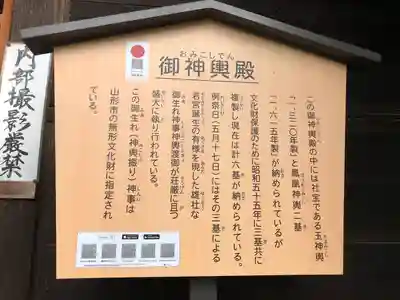 おみこしでん
御神輿殿
この御神輿殿の中には社宝である玉神輿
(一、三二〇年製)と鳳凰神輿二基
(一、六一五年製)が納められているが
文化財保護のために昭和五十五年に三基共に
複製し現在は計六基が納められている。
例祭日(五月十七日)にはその三基による
若宮誕生の有様を現した雄壮な
御生れ神事神輿渡御が荘厳に且つ
盛大に執り行われている。
この御生れ(神輿振り)神事は
山形市の無形文化財に指定され
ている。
内部撮影厳禁